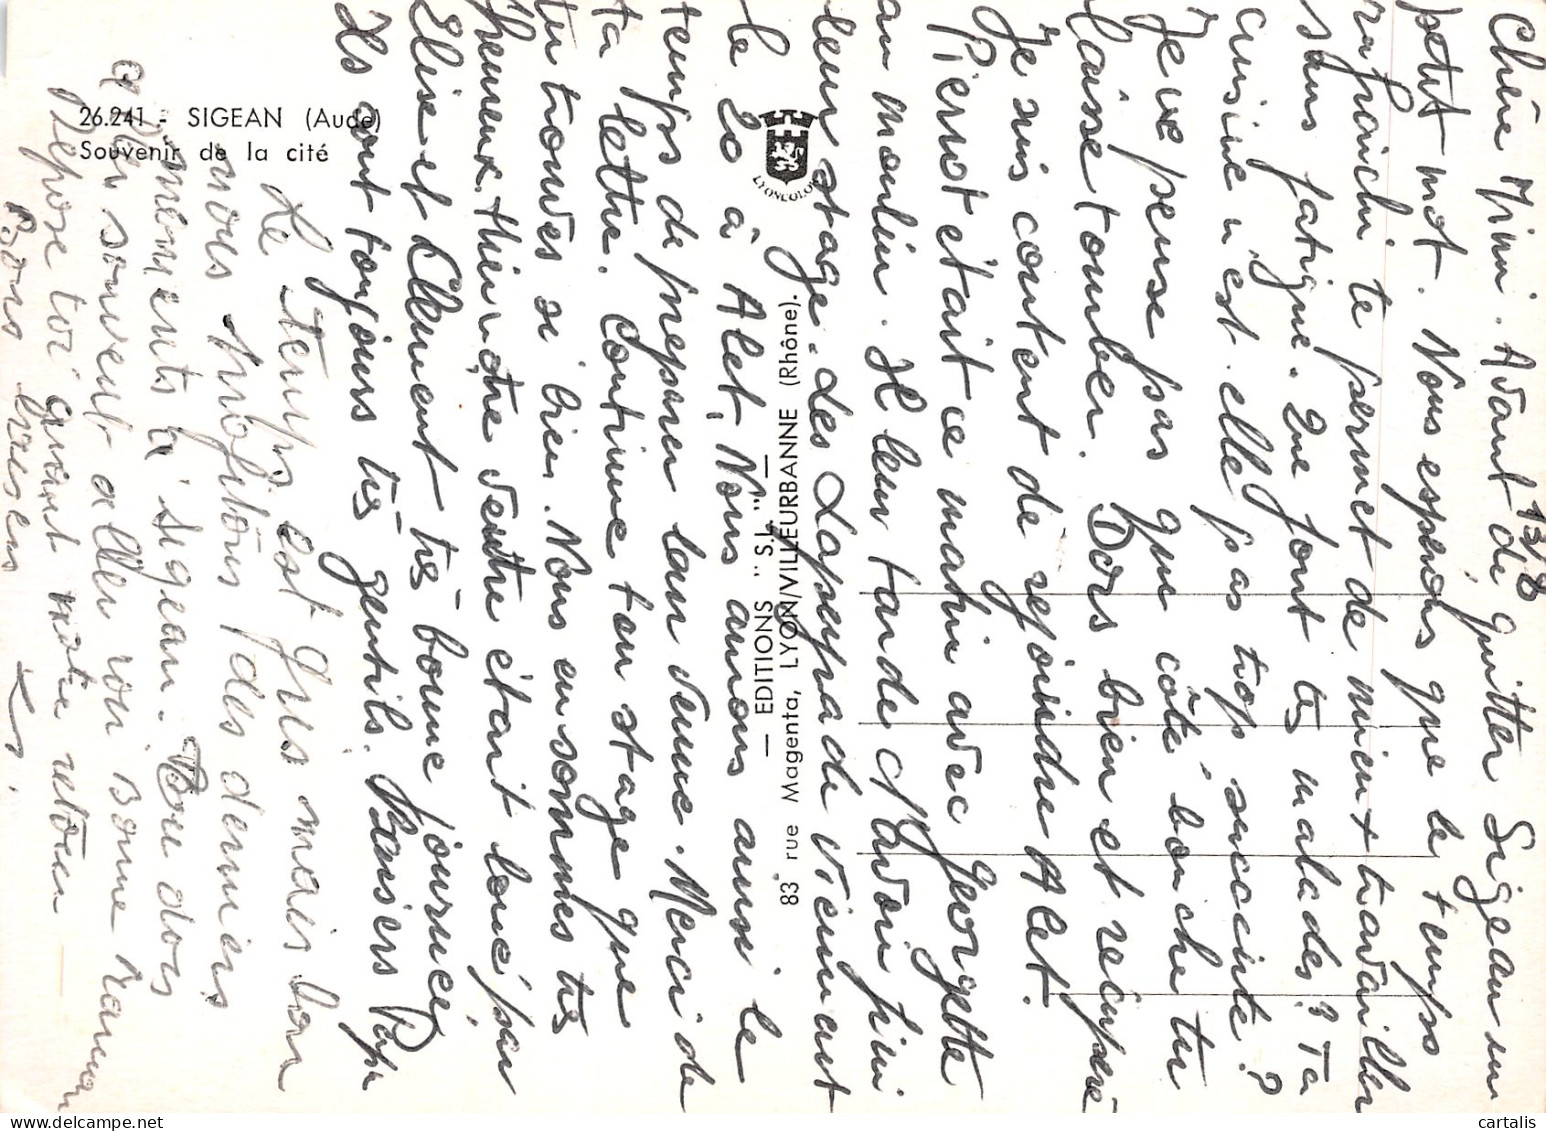 13/8
Chère Mimi. Avant de quitter Sigean un
petit mot. Nous espérons que le temps
rafraîchi te permet de mieux travailler
sans fatigue. Que font tes malades? Ta
cuisine n'est elle pas trop succinte?
Je ne pense pas que côté "bouche tu
laisse tomber. Dors bien et récupéré
Je suis content de rejoindre Alet.
Pierrot était ce matin avec Georgette
au moulin. Il leur tarde d'avoir fini
leur stage. Les Lapeyrade viennent
le 20 à Alet. Nous aurons aussi le
temps de préparer leur venue. Merci de
ta lettre. Continue ton stage que
tu trouves si bien. Nous en sommes très
heureux. Hier notre ventre était loué par
Elise et Clément très bonne journée
Ils sont toujours très gentils. Baisers Papi
Le temps est gris mais bon
nous profitons des derniers
moments à Sigean. Bon
et souvent aller voir bonne maman
Repose toi avant notre retour
Bons baisers
26.241 - SIGEAN (Aude)
Souvenir de la cité
LYONCOLOR
— EDITIONS "S.L." —
83 rue Magenta, LYON/VILLEURBANNE (Rhône).
cartalis